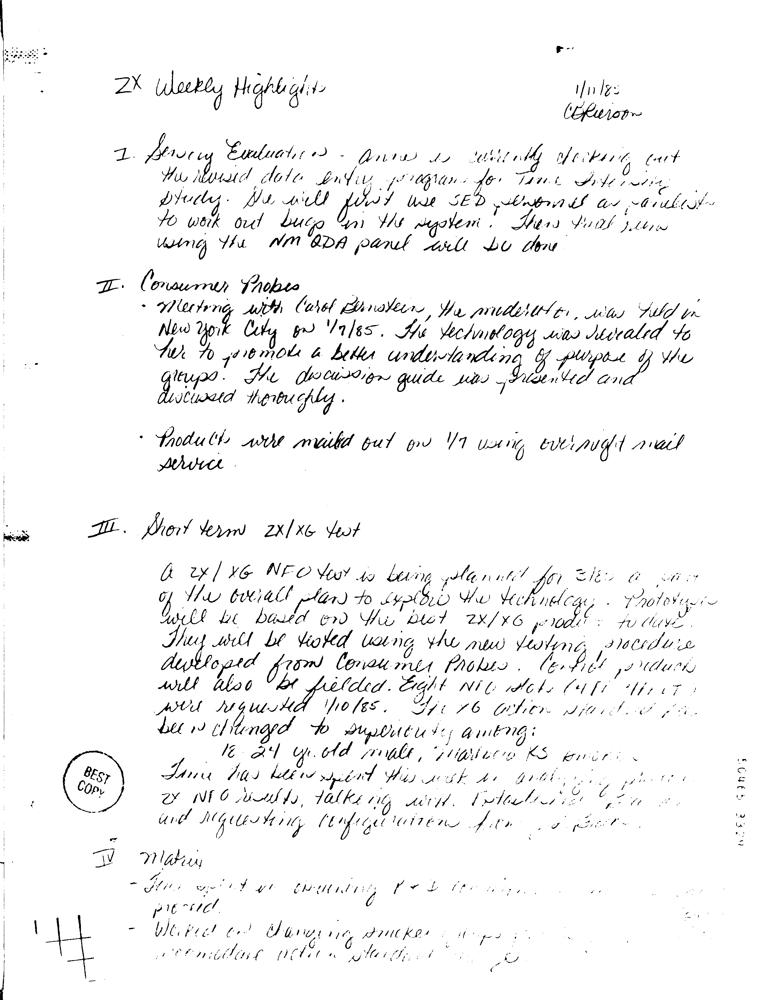 ZX Weekly Highlights
1/11/85
I. Sensory Evaluation - Anne is currently checking out
the revised data entry program for Time Intensity
Study. She will first use SED personnel as panelists
to work out bugs in the system. Then trial runs
using the NM QDA panel will be done
II. Consumer Probes
· Meeting with Carol Bernstein, the moderator, was held in
New York City on 1/7/85. The technology was revealed to
her to promote a better understanding of purpose of the
groups. The discussion guide was presented and
discussed thoroughly.
· Products were mailed out on 1/7 using overnight mail
service
III. Short term ZX/XG test
A ZX/XG NFO test is being planned for a part
of the overall plan to explore the technology. Prototypes
will be based on the best ZX/XG to date.
They will be tested using the new testing procedure
developed from Consumer Probes. Control products
will also be fielded. Eight NFO
were requested 1/10/85. The XG action standard has
been changed to superiority among:
18-24 yr. old male, Marlboro KS
Time has been spent this week in analyzing
ZX NFO results, talking with
and requesting configuration from
BEST
COPY
IV Matrix
- Time spent in
- Worked on changing smoker
action standard